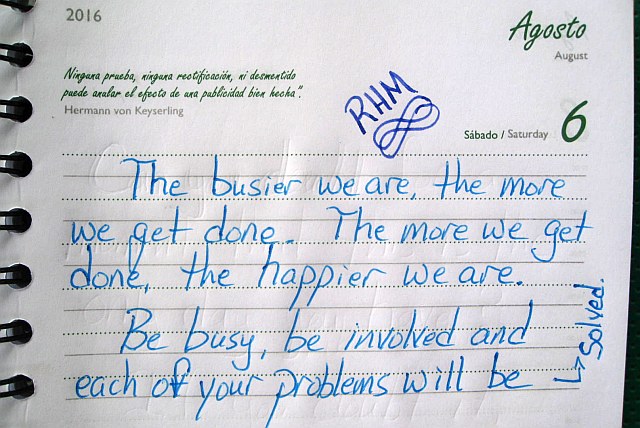 2016
Agosto
August
Ninguna prueba, ninguna rectificación, ni desmentido
puede anular el efecto de una publicidad bien hecha".
Hermann von Keyserling
RHM
Sábado / Saturday 6
The busier we are, the more
we get done. The more we get
done, the happier we are.
Be busy, be involved and
each of your problems will be
↳ Solved.